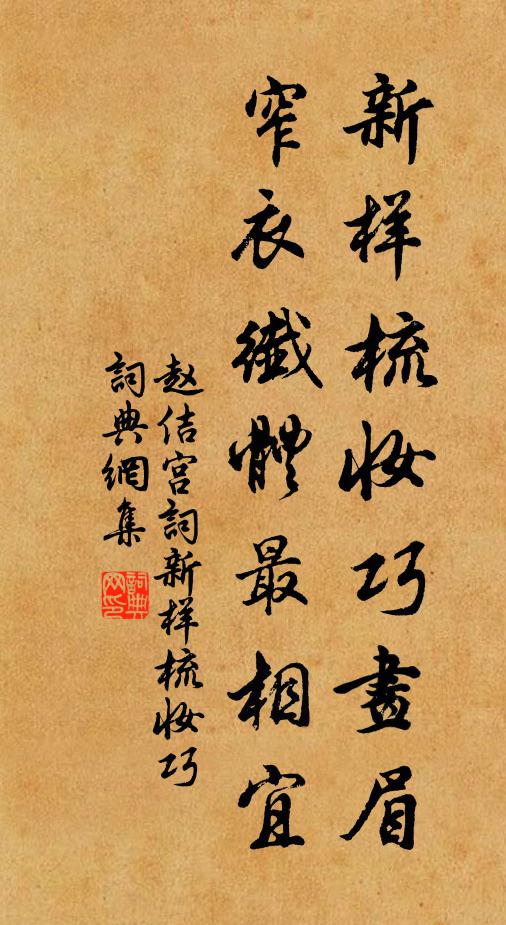 新样梳妆巧畫眉
窄衣纖體最相宜
赵佶宮詞新样梳妆巧
詞典網集
詞典
网印